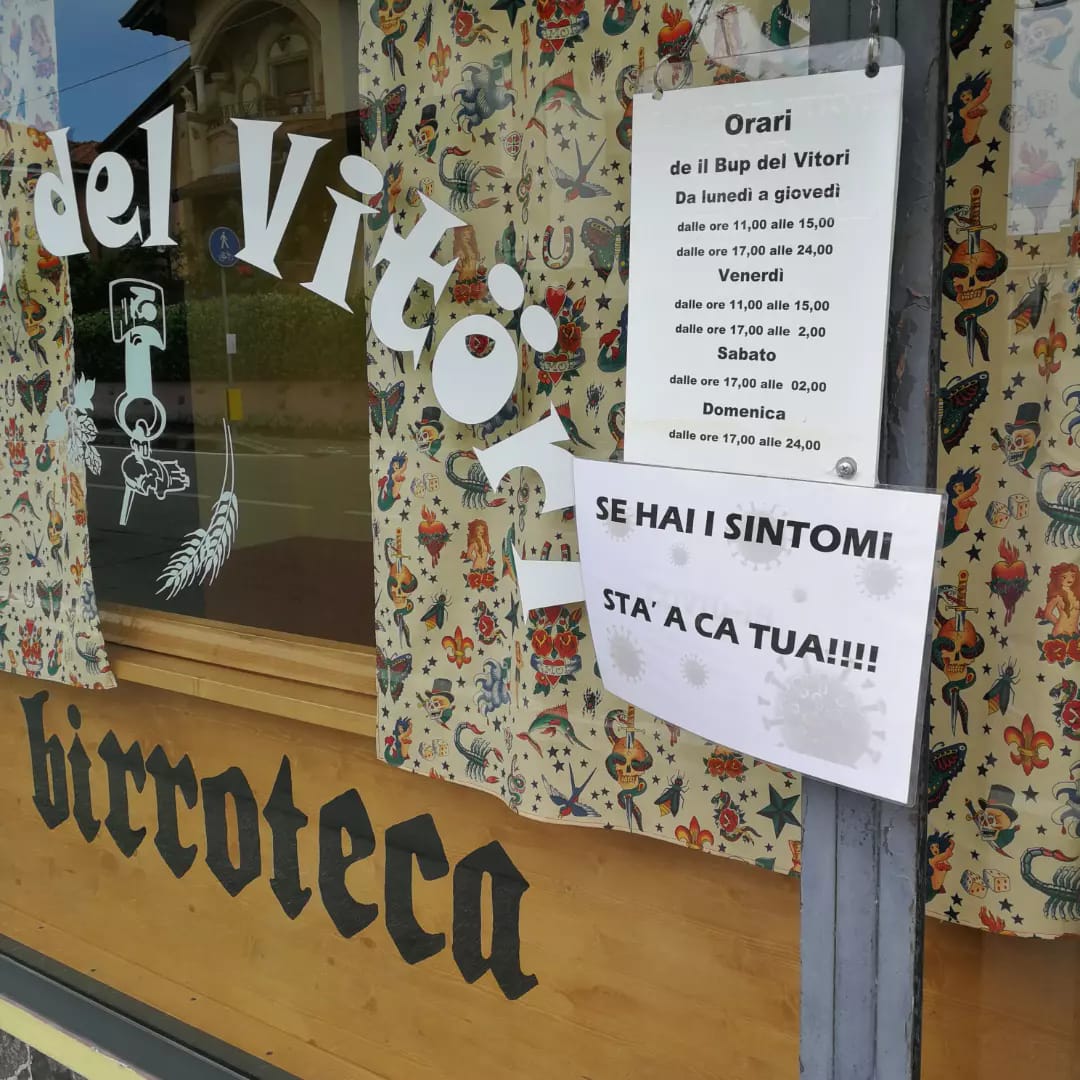 del Vitöri
birroteca
Orari
de il Bup del Vitori
Da lunedì a giovedì
dalle ore 11,00 alle 15,00
dalle ore 17,00 alle 24,00
Venerdì
dalle ore 11,00 alle 15,00
dalle ore 17,00 alle 2,00
Sabato
dalle ore 17,00 alle 02,00
Domenica
dalle ore 17,00 alle 24,00
SE HAI I SINTOMI
STA' A CA TUA!!!!